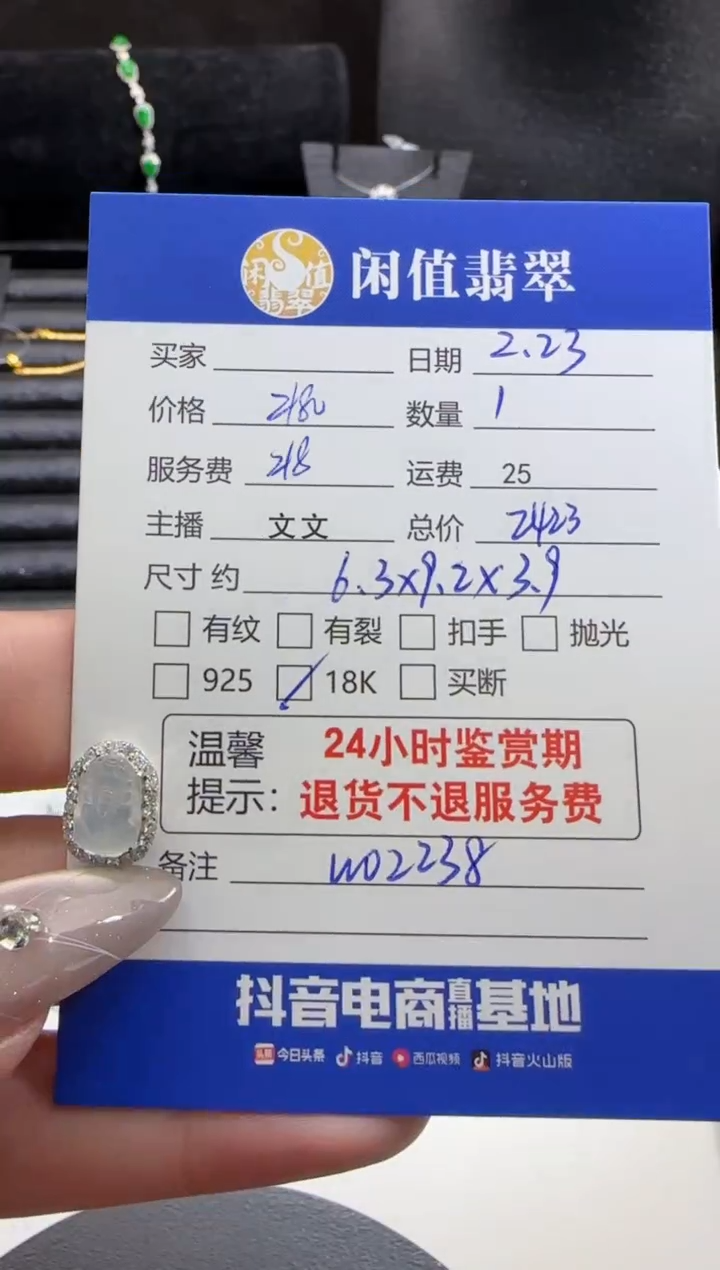 闲值翡翠 闲值翡翠
买家 日期 2.23
价格 2180 数量 1
服务费 218 运费 25
主播 文文 总价 2423
尺寸 约 6.3x9.2x3.9
有纹 有裂 扣手 抛光
925 18K 买断
温馨 24小时鉴赏期
提示: 退货不退服务费
备注 W02238
抖音电商直播基地
头条 今日头条 抖音 西瓜视频 抖音火山版